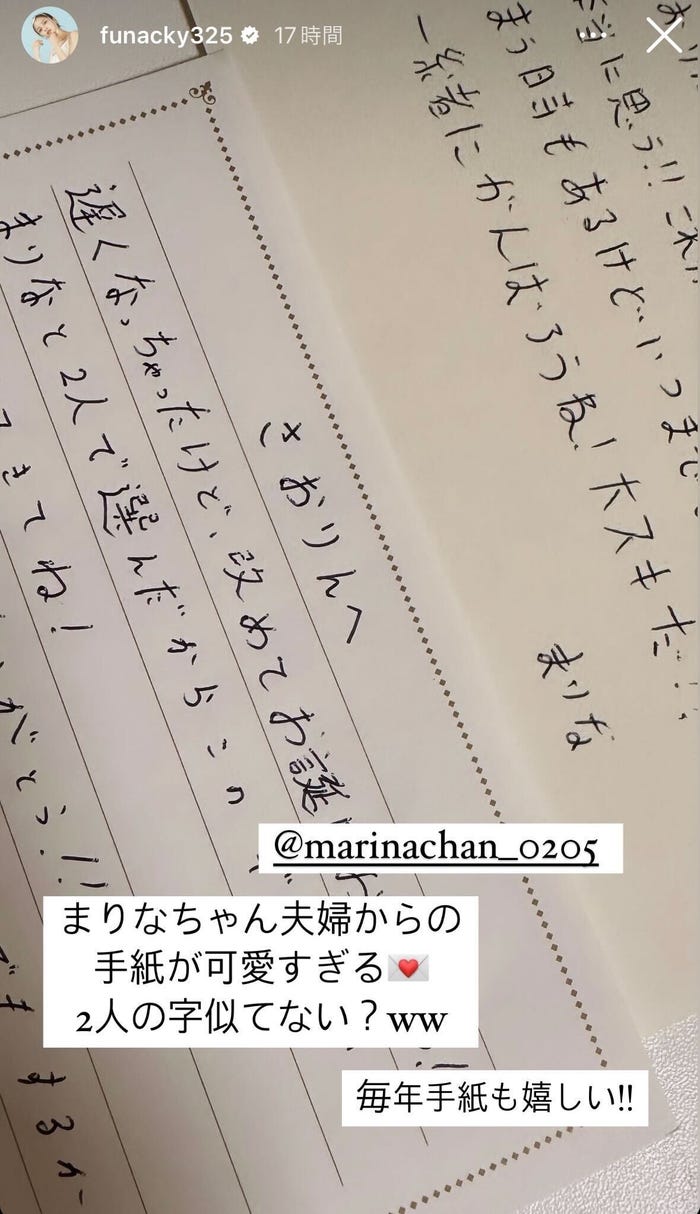 funacky325 17時間
当に思う!! これ
まう日もあるけどいつまで
一緒にがんばろうね! 大スキだ!!
まりな
さおりんへ
遅くなっちゃったけど、改めてお誕
まりなと2人で選んだから
きてね!
がとう!!
するか
@marinachan_0205
まりなちゃん夫婦からの
手紙が可愛すぎる💌
2人の字似てない？ww
毎年手紙も嬉しい!!